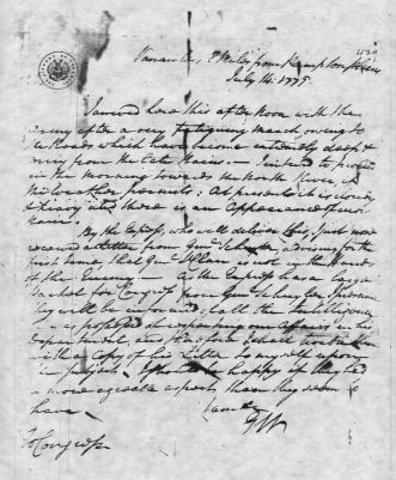 8 Miles from Pumpton plains
July 14. 1777.
I arrived here this afternoon with the
Army after a very fatiguing march owing to
the Roads which have become extremely deep &
miry from the late Rains. — I intend to proceed
in the morning towards the North River, if
the weather permits: At present it is cloudy
& there is an Appearance of more
Rain.
By the Express, who will deliver this, I just now
received a Letter from Genl Schuyler advising for the
first time that Genl St Clair is not in the Hands
of the Enemy — as the Express has a
Packet for Congress from Genl Schuyler, I presume
they will be informed of all the Intelligence
he was possessed of respecting our Affairs in his
Department, and therefore I shall not trouble them
with a Copy of his Letter to myself upon
the subject. I should be happy if they had
a more agreeable aspect than they seem to
have.
I am &c
GW
To Congress